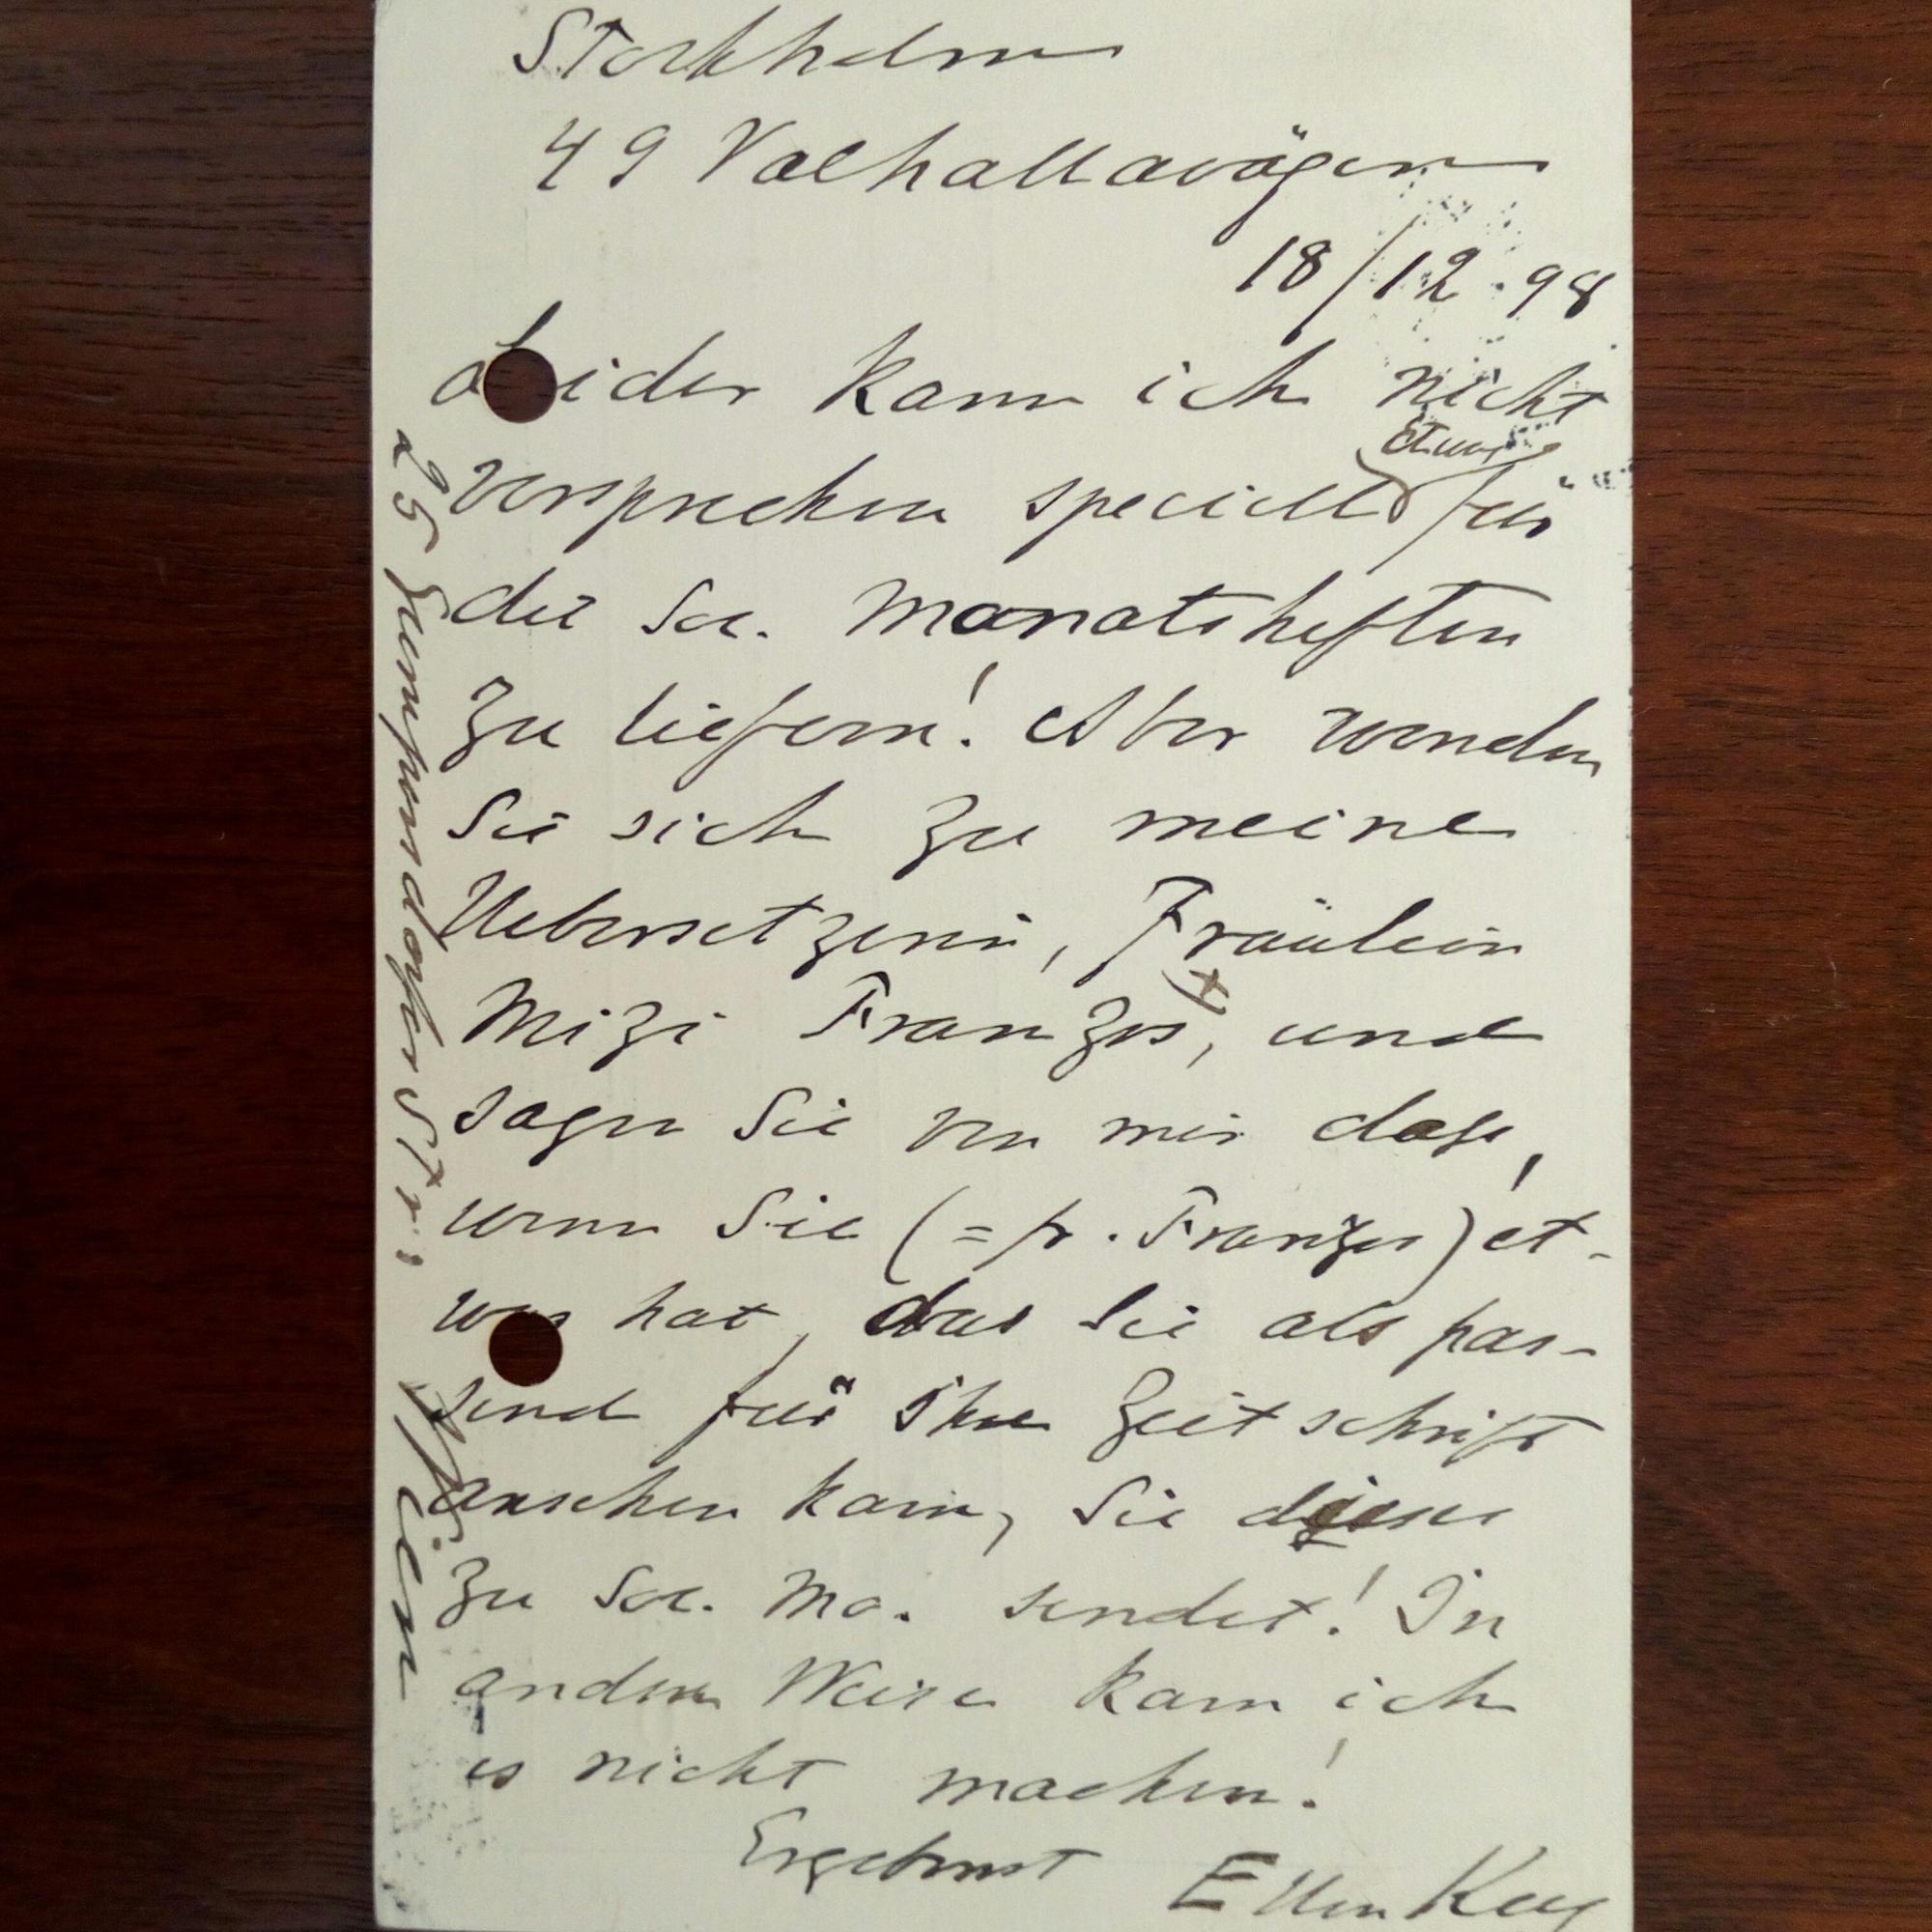 Stockholm
49 Valhallavägen
18/12.98
Leider kann ich nicht
etwas
versprechen speciell für
die Soc. Monatsheften
zu liefern! Aber wenden
Sie sich zu meine
Uebersetzerin, Fräulein
Mizi Franzos, und
sagen Sie von mir dass,
wenn Sie (= fr. Franzos) et-
was hat, das Sie als pas-
send für Ihre Zeitschrift
ansehen kann, Sie dieses
zu Soc. Mo. sendet! In
andern Weise kann ich
es nicht machen!
Ergebenst Ellen Key
25 Gumpendorferstr.
Wien